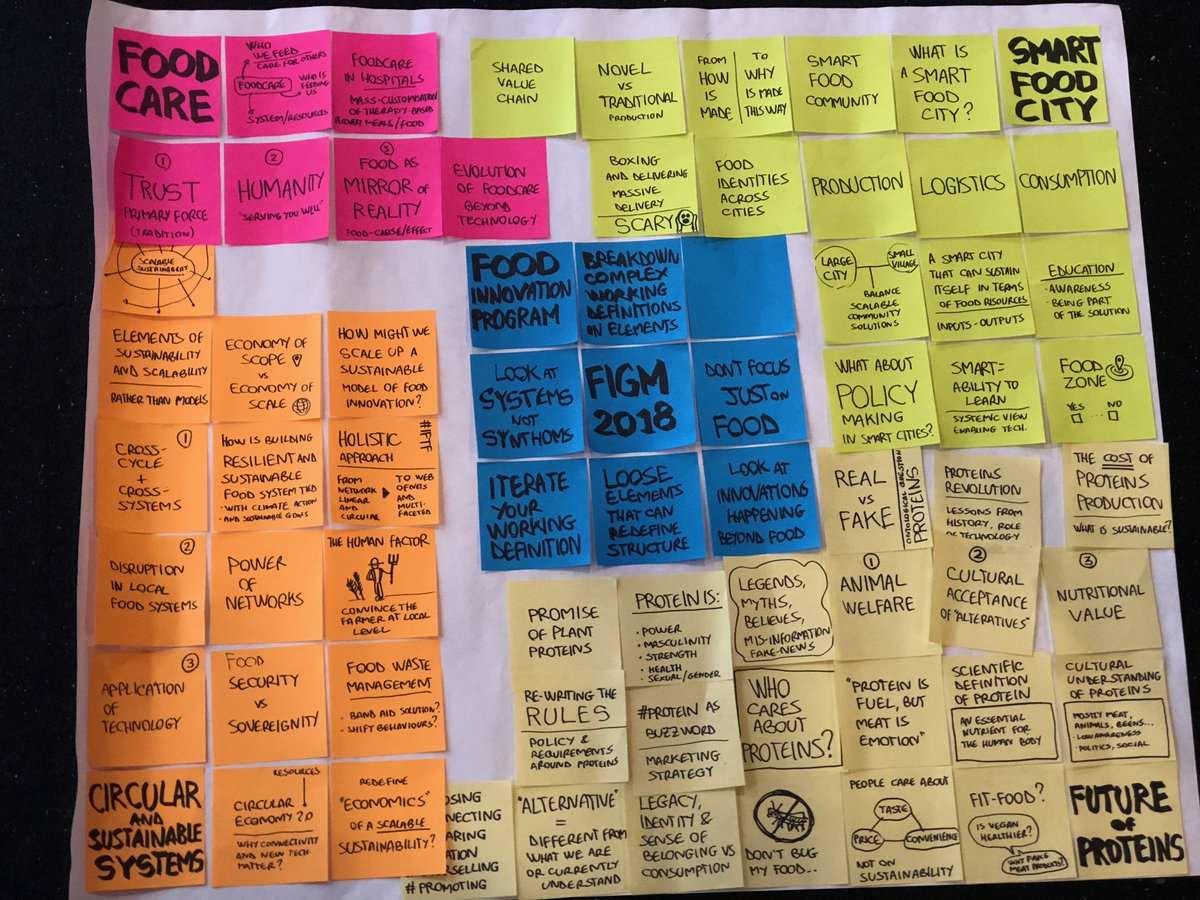 FOOD
CARE
WHO
WE FEED
CARE FOR OTHERS
FOODCARE
WHO IS
FEEDING
US
SYSTEM/RESOURCES
FOODCARE
IN
HOSPITALS
MASS-CUSTOMISATION
OF THERAPY BASED
MEALS/FOOD
①
TRUST
PRIMARY FORCE
(TRADITION)
②
HUMANITY
"SERVING YOU WELL"
③
FOOD AS
MIRROR OF
REALITY
FOOD-CAUSE/EFFECT
EVOLUTION
OF FOODCARE
BEYOND
TECHNOLOGY
SHARED
VALUE
CHAIN
NOVEL
VS
TRADITIONAL
PRODUCTION
FROM
HOW
IS
MADE
TO
WHY
IS MADE
THIS WAY
SMART
FOOD
COMMUNITY
WHAT IS
A SMART
FOOD
CITY?
SMART
FOOD
CITY
BOXING
AND DELIVERING
MASSIVE
DELIVERY
SCARY
FOOD
IDENTITIES
ACROSS
CITIES
PRODUCTION
LOGISTICS
CONSUMPTION
LARGE
CITY
SMALL
VILLAGE
BALANCE
SCALABLE
COMMUNITY
SOLUTIONS
A SMART CITY
THAT CAN SUSTAIN
ITSELF IN TERMS
OF FOOD RISOURCES
INPUTS-OUTPUTS
EDUCATION
- AWARENESS
- BEING PART
OF THE SOLUTION
WHAT ABOUT
POLICY
MAKING
IN SMART CITIES?
SMART=
ABILITY TO
LEARN
SYSTEMIC VIEW
ENABLING TECH.
FOOD
ZONE
YES NO
FOOD
INNOVATION
PROGRAM
BREAKDOWN
COMPLEX
WORKING
DEFINITIONS
IN ELEMENTS
LOOK AT
SYSTEMS
NOT
SYNTHOMS
FIGM
2018
DON'T FOCUS
JUST ON
FOOD
ITERATE
YOUR
WORKING
DEFINITION
LOOSE
ELEMENTS
THAT CAN
REDEFINE
STRUCTURE
LOOK AT
INNOVATIONS
HAPPENING
BEYOND FOOD
SCALABLE
SUSTAINABILITY
ELEMENTS OF
SUSTAINABILITY
AND SCALABILITY
RATHER THAN MODELS
ECONOMY OF
SCOPE
VS
ECONOMY OF
SCALE
HOW MIGHT WE
SCALE UP A
SUSTAINABLE
MODEL OF FOOD
INNOVATION?
①
CROSS-
CYCLE
+
CROSS-
SYSTEMS
HOW IS BUILDING
RESILIENT AND
SUSTAINABLE
FOOD SYSTEM TIED
- WITH CLIMATE ACTION
- AND SUSTAINABLE GOALS
#IFTF
HOLISTIC
APPROACH
FROM
NETWORK
LINEAR
AND
CIRCULAR
TO WEB
OF NETS
AND
MULTI-
FACETED
②
DISRUPTION
IN LOCAL
FOOD SYSTEMS
POWER
OF
NETWORKS
THE HUMAN FACTOR
CONVINCE THE
FARMER AT LOCAL
LEVEL
③
APPLICATION
OF
TECHNOLOGY
FOOD
SECURITY
VS
SOVEREIGNITY
FOOD WASTE
MANAGEMENT
- BAND AID SOLUTION?
- SHIFT BEHAVIOURS?
CIRCULAR
AND
SUSTAINABLE
SYSTEMS
RESOURCES
CIRCULAR
ECONOMY 2.0
WHY CONNECTIVITY
AND NEW TECH
MATTER?
REDEFINE
"ECONOMICS"
OF A SCALABLE
SUSTAINABILITY?
REAL
VS
FAKE
ONTOLOGICAL QUESTION
PROTEINS
PROTEINS
REVOLUTION
LESSONS FROM
HISTORY, ROLE
OF TECHNOLOGY
THE COST OF
PROTEINS
PRODUCTION
WHAT IS SUSTAINABLE?
PROMISE
OF PLANT
PROTEINS
PROTEIN IS:
• POWER
• MASCULINITY
• STRENGTH
• HEALTH
SEXUAL/GENDER
LEGENDS,
MYTHS,
BELIEVES,
MIS-INFORMATION
FAKE-NEWS
①
ANIMAL
WELFARE
②
CULTURAL
ACCEPTANCE
OF "ALTERATIVES"
③
NUTRITIONAL
VALUE
RE-WRITING THE
RULES
POLICY &
REQUIREMENTS
AROUND PROTEINS
#PROTEIN AS
BUZZWORD
MARKETING
STRATEGY
WHO
CARES
ABOUT
PROTEINS?
"PROTEIN IS
FUEL, BUT
MEAT IS
EMOTION"
SCIENTIFIC
DEFINITION
OF PROTEIN
AN ESSENTIAL
NUTRIENT FOR
THE HUMAN BODY
CULTURAL
UNDERSTANDING
OF PROTEINS
MOSTLY MEAT,
ANIMALS, BEENS...
- LOW AWARENESS
- POLITICS, SOCIAL
# PROMOTING
"ALTERNATIVE"
=
DIFFERENT FROM
WHAT WE ARE
OR CURRENTLY
UNDERSTAND
LEGACY,
IDENTITY &
SENSE OF
BELONGING VS
CONSUMPTION
DON'T BUG
MY FOOD...
PEOPLE CARE ABOUT
TASTE
PRICE
CONVENIENCE
NOT ON
SUSTAINABILITY
FIT-FOOD?
IS VEGAN
HEALTHIER?
WHY FAKE
MEAT PRODUCTS?
FUTURE
OF
PROTEINS